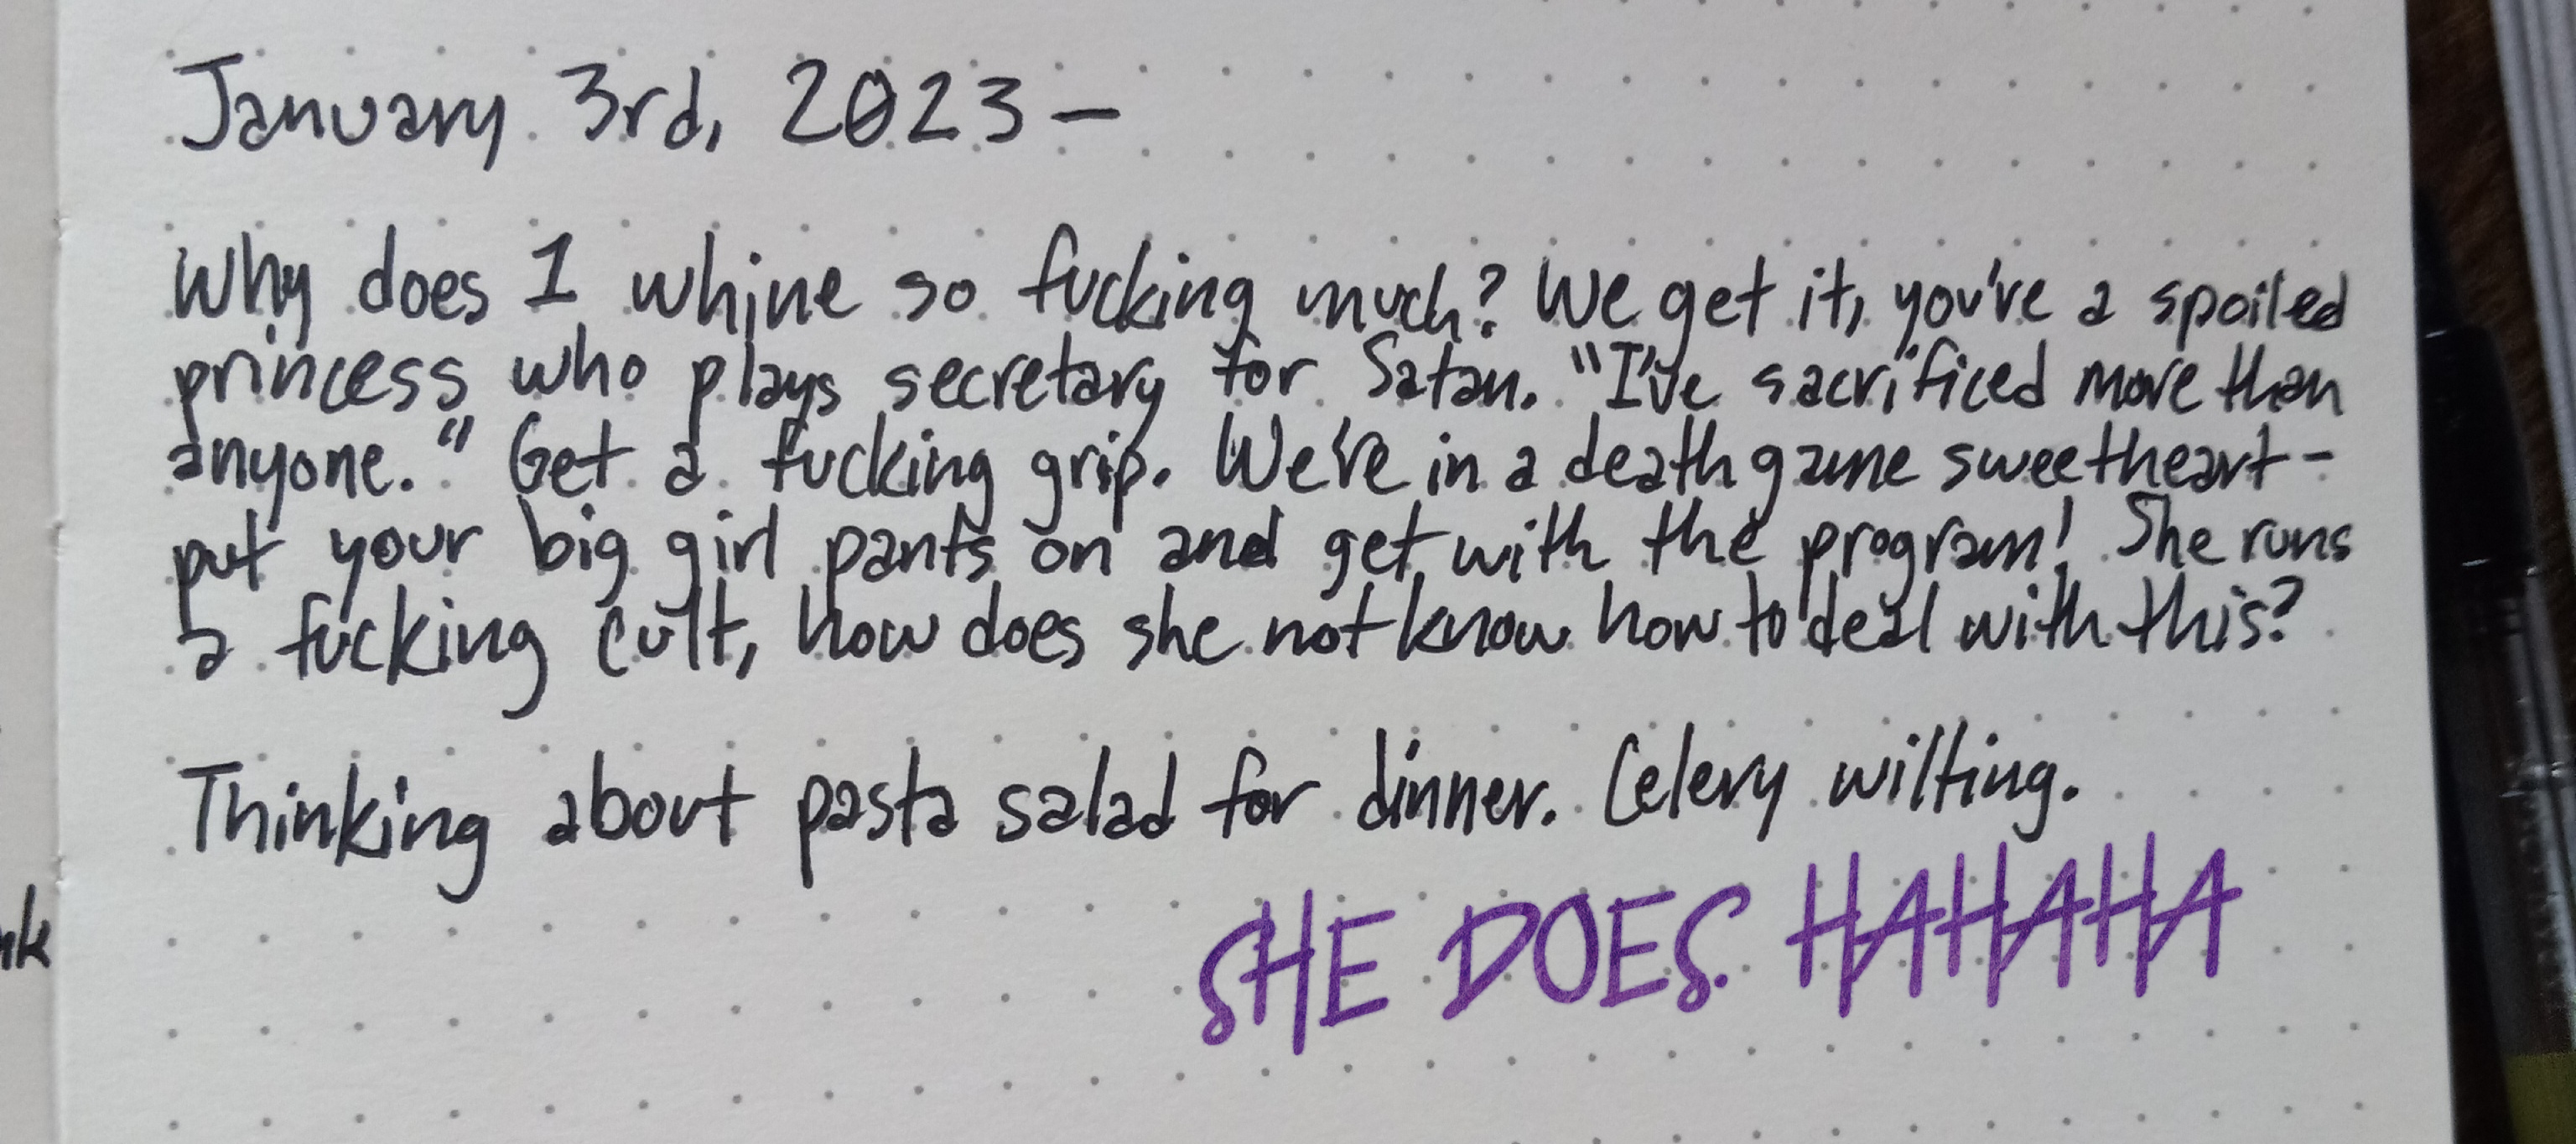 January 3rd, 2023 –
Why does 1 whine so fucking much? We get it, you've a spoiled
princess who plays secretary for Satan. "I've sacrificed more than
anyone." Get a fucking grip. We're in a death game sweetheart –
put your big girl pants on and get with the program! She runs
a fucking cult, how does she not know how to deal with this?
Thinking about pasta salad for dinner. Celery wilting.
SHE DOES. HAHAHA